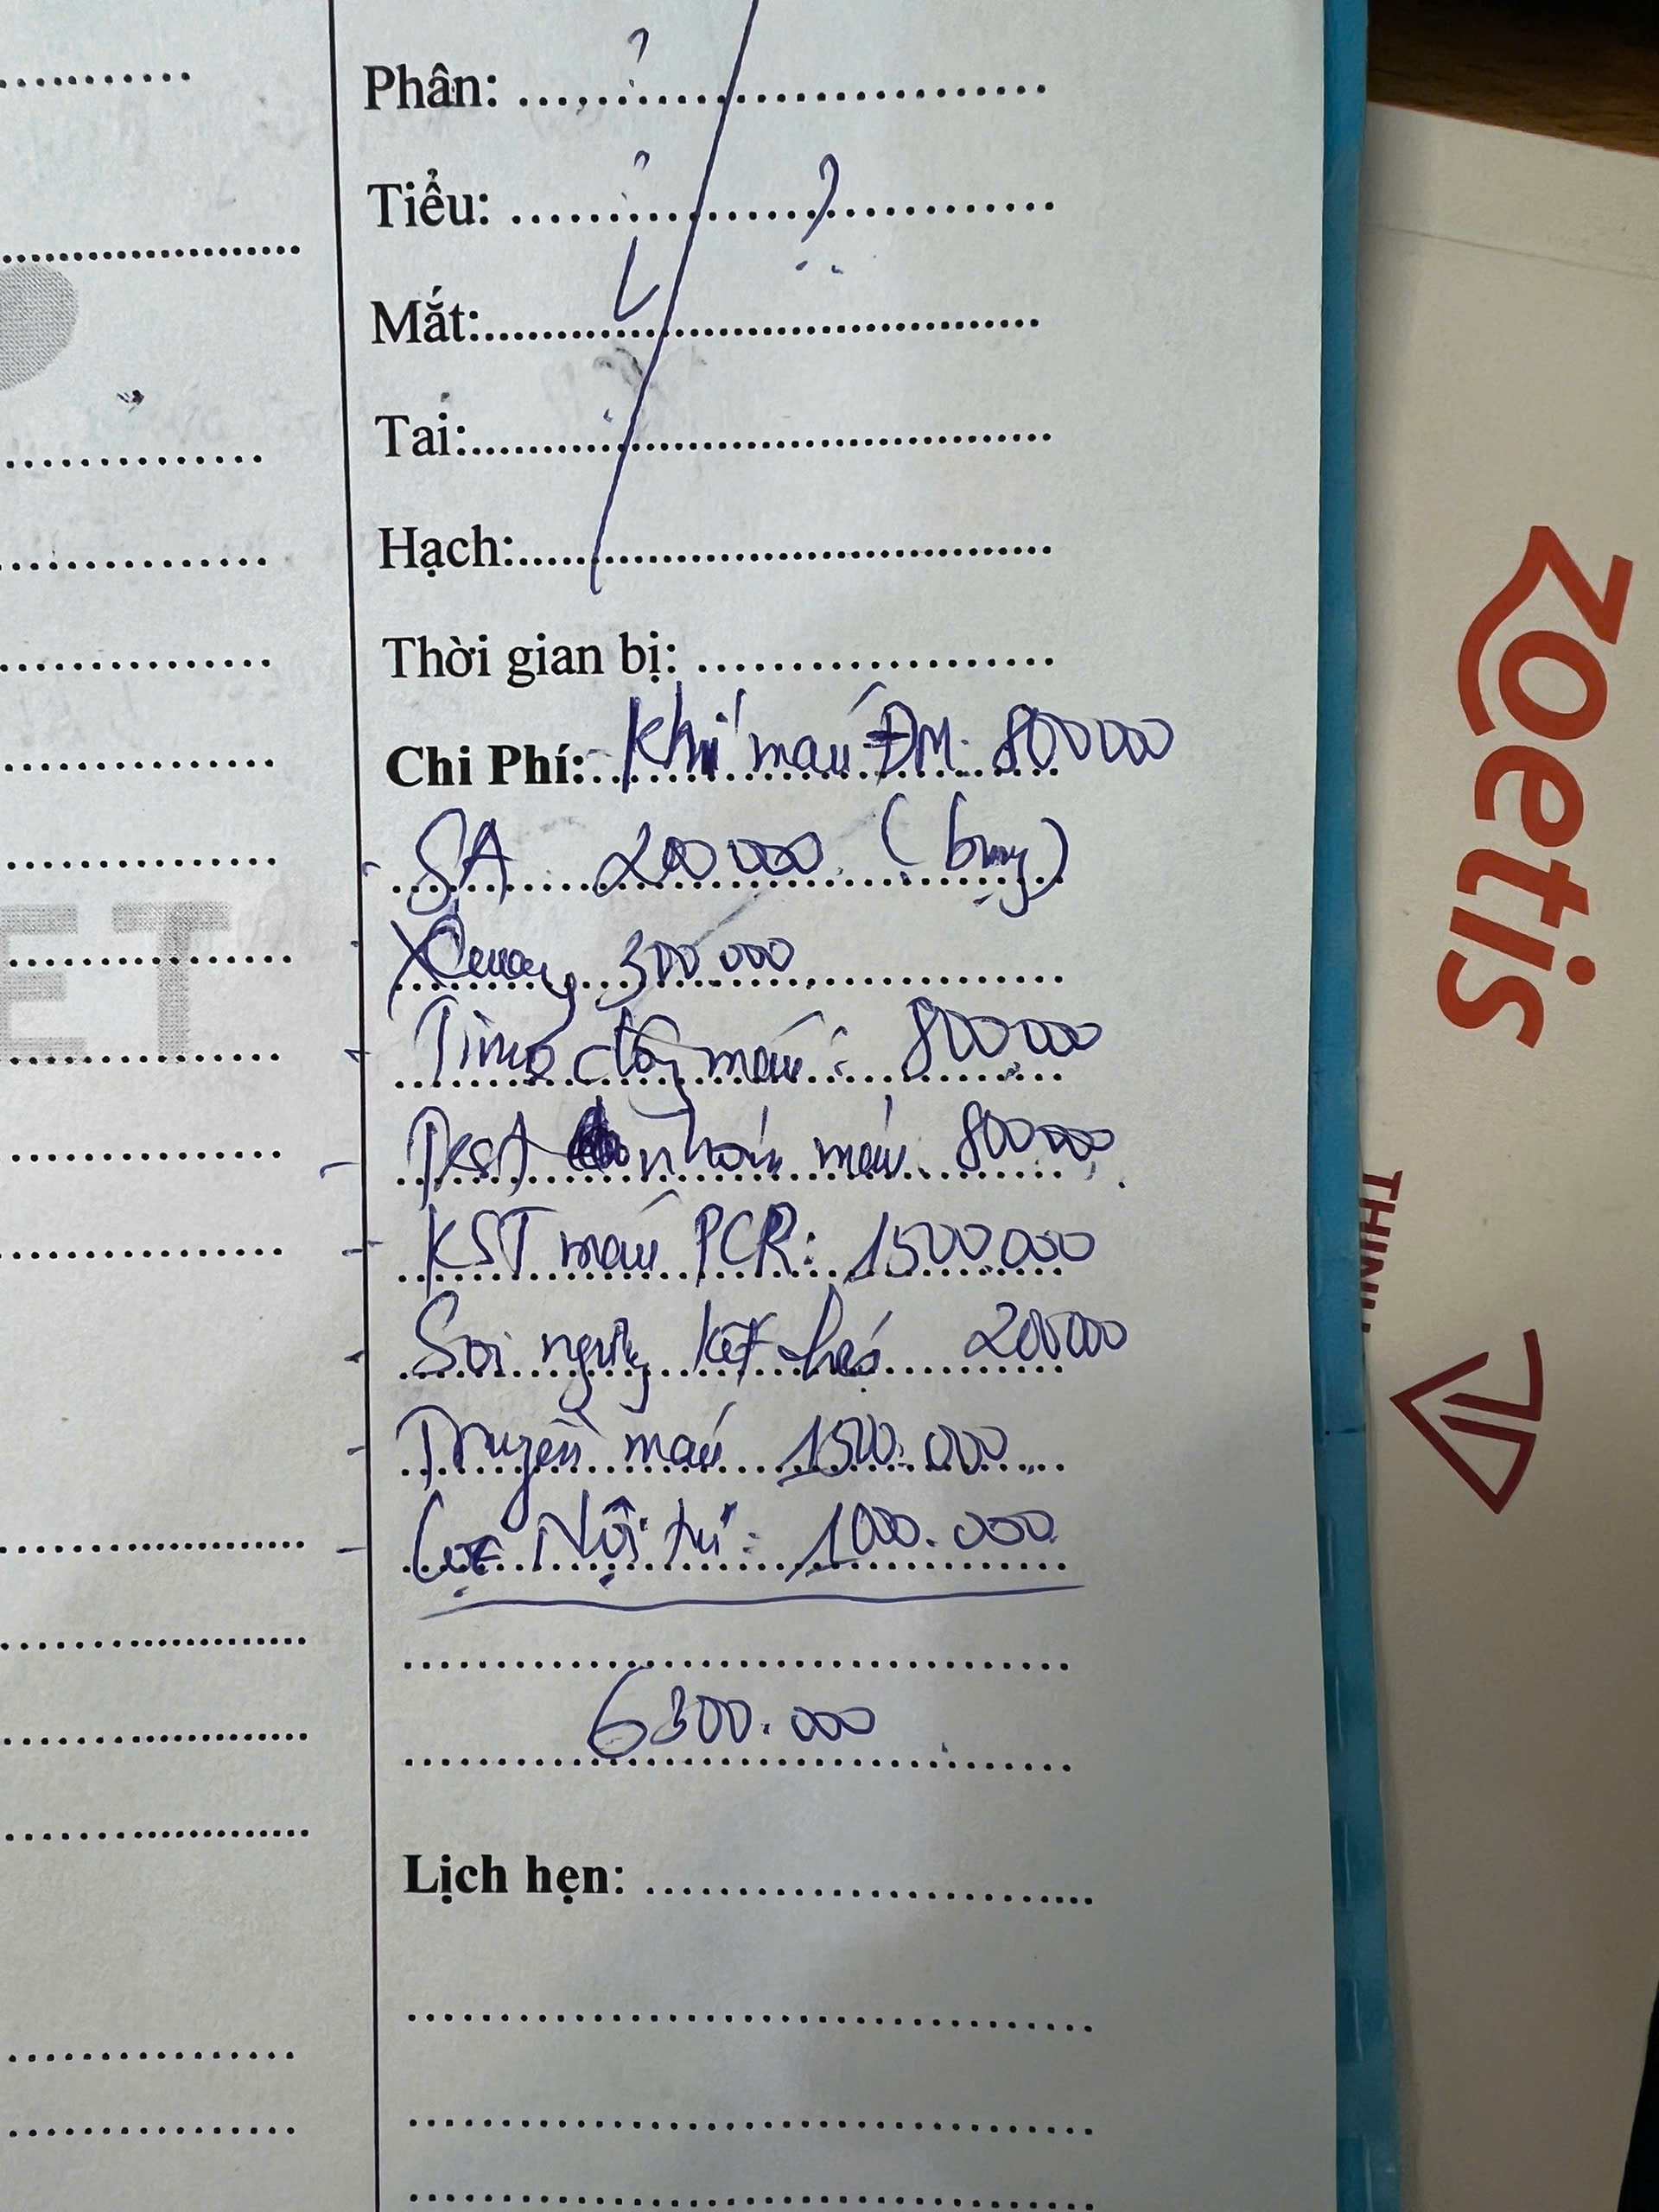 Phân: ? ..............................
Tiểu: ? ..............................
Mắt: ..............................
Tai: ..............................
Hạch: ..............................
Thời gian bị: ..............................
Chi Phí: - Khí máu ĐM: 800000
- SA 200 000 (bụng)
- XQuang 300 000
- Time đông máu: 800.000
- Test nhóm máu 800000
- KST máu PCR: 1500.000
- Soi ngưng kết 200000
- Truyền máu 1500.000
- Lọc Nội trú: 1000.000
6300.000
Lịch hẹn: ..............................
ET
zoetis